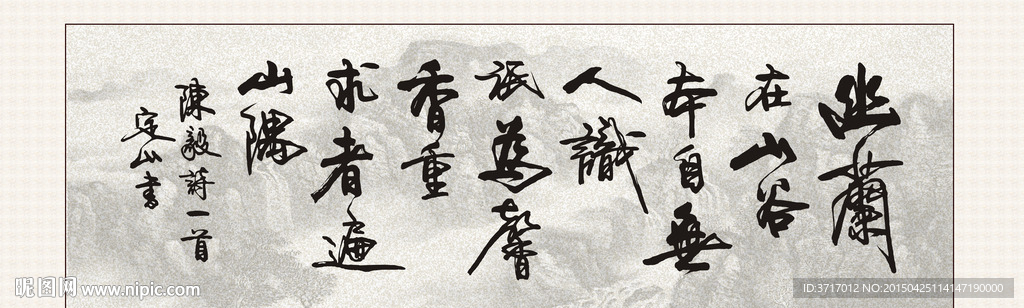 幽蘭
在山谷
本自無
人識
祇為馨
香重
求者遍
山隅
陳毅詩一首
定山書
昵图网 www.nipic.com
ID:3717012 NO:20150425114147190000